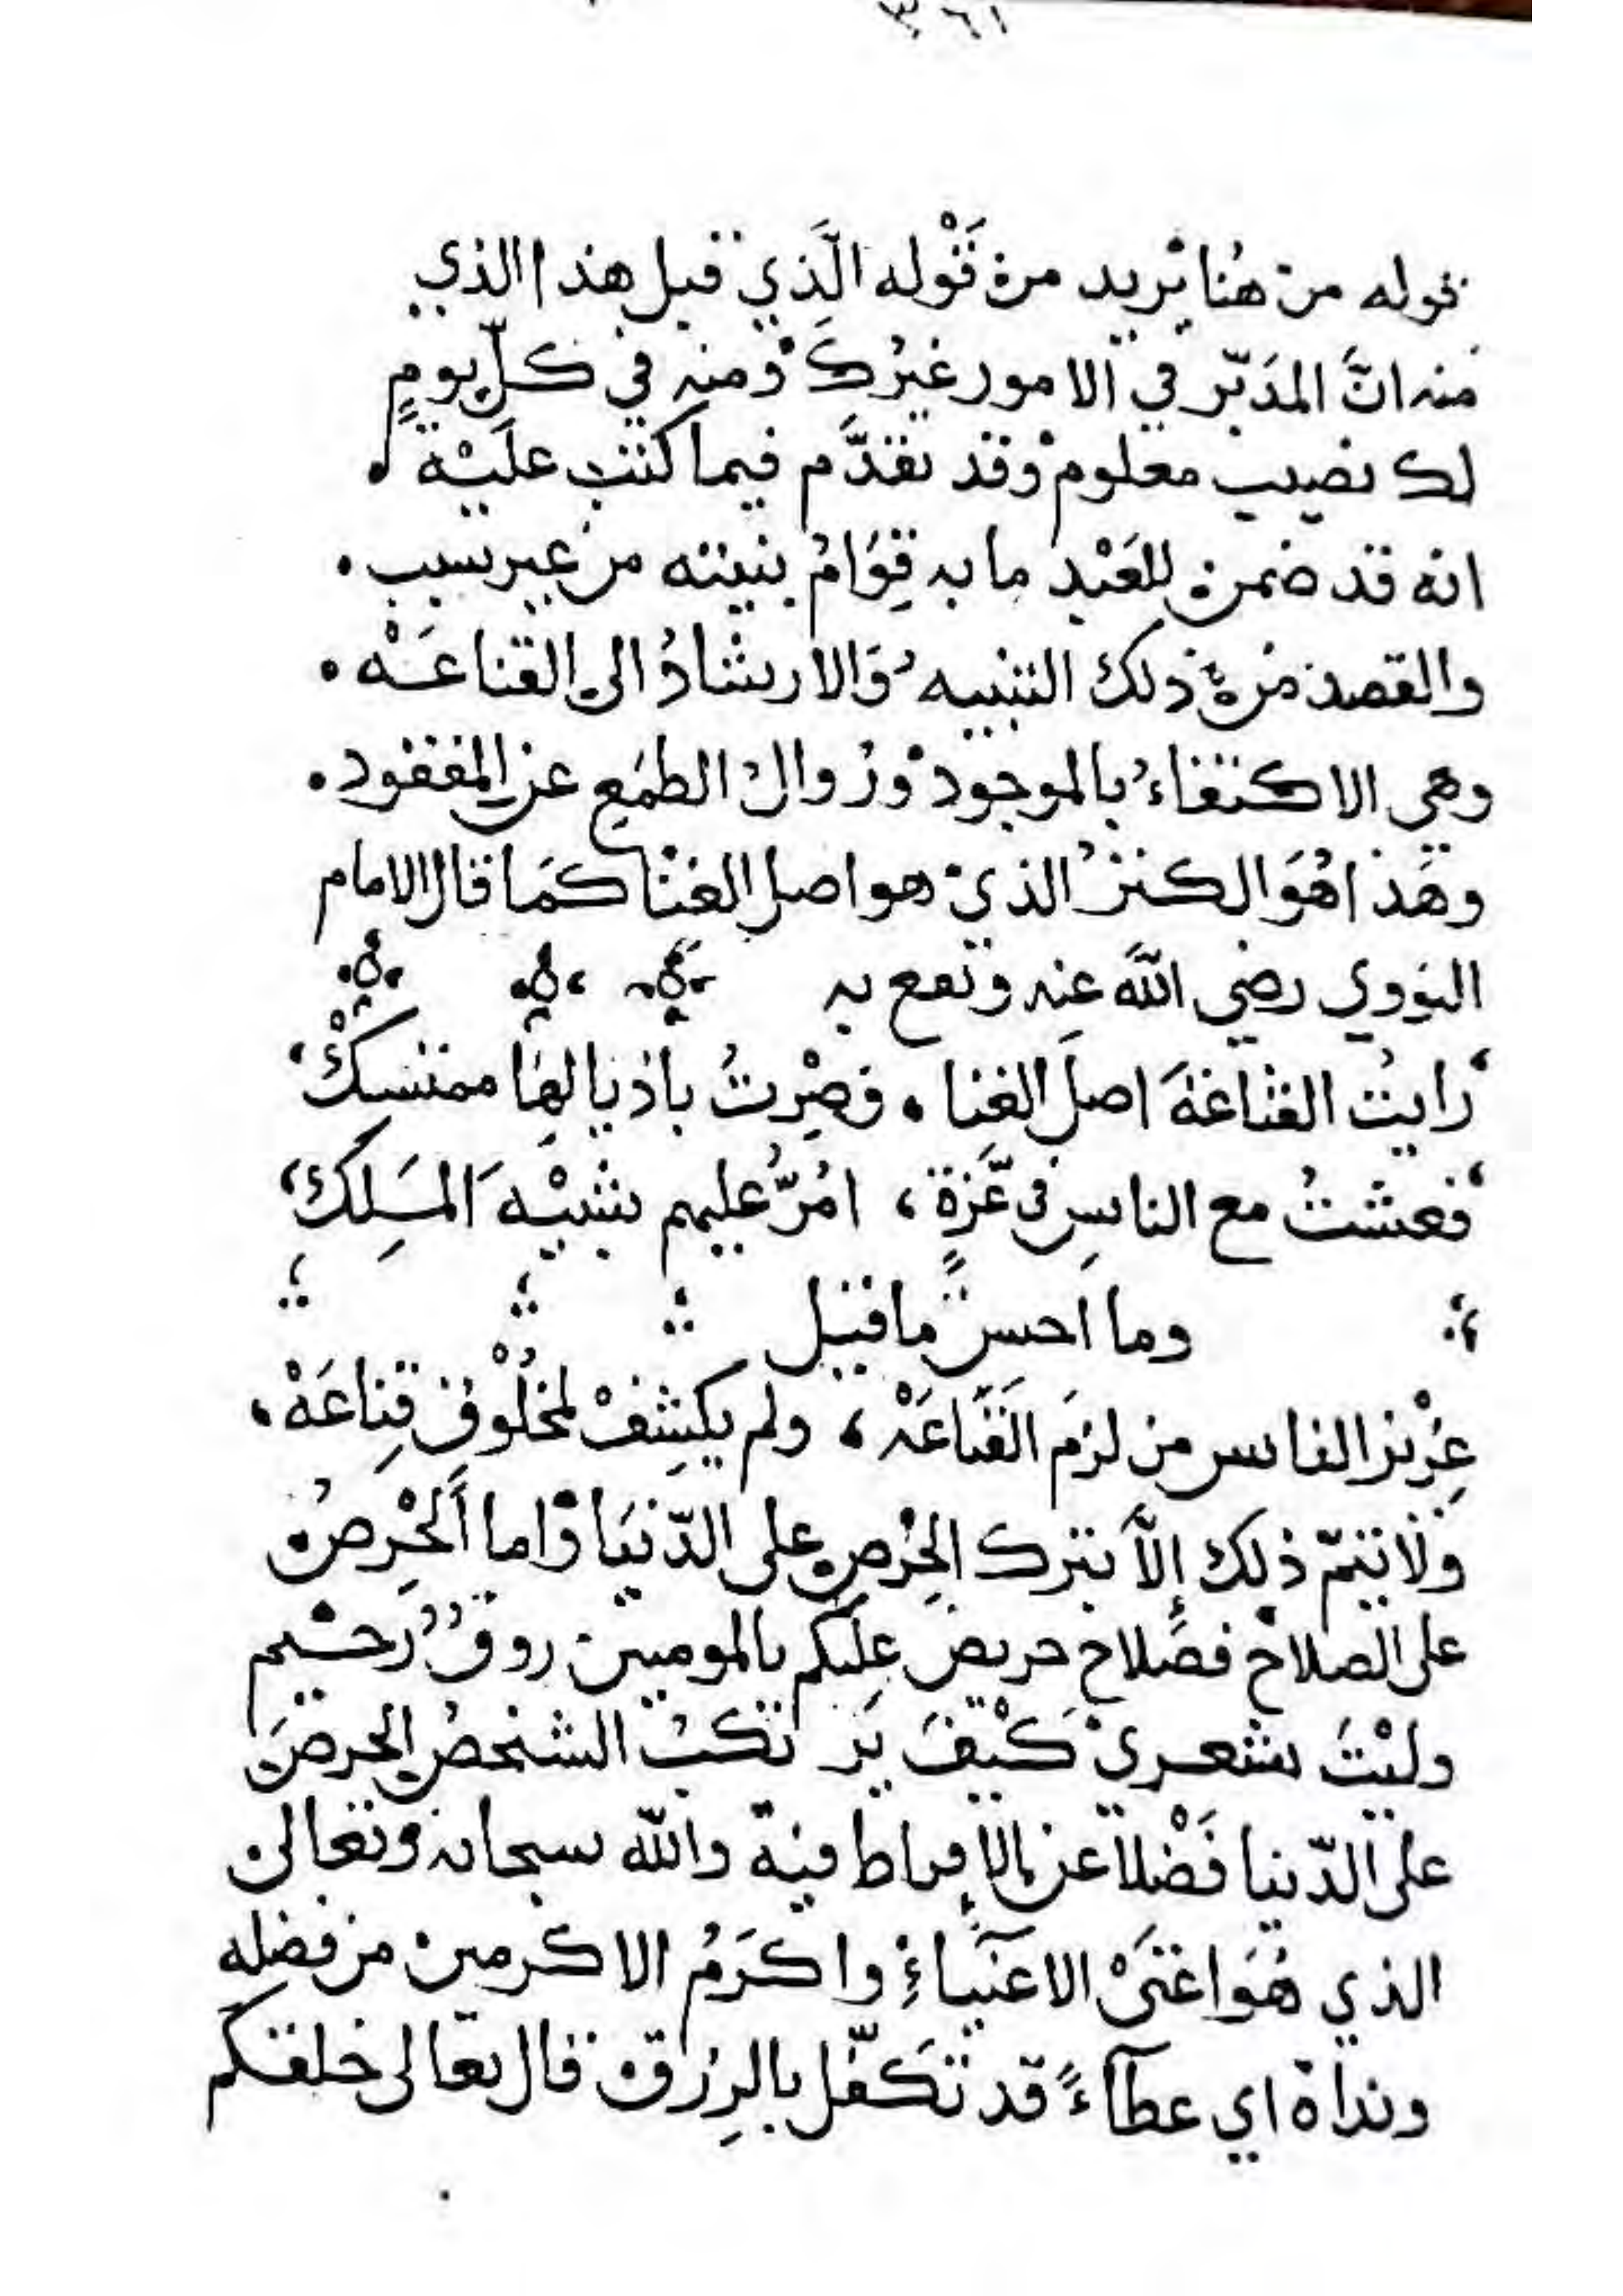 ٣٦١
قوله من هُنا يريد من قَوْله الَّذي قبل هذا الذي
منه انَّ المدَبّر في الامور غيرُكَ ومنه في كلّ يومٍ
لك نصيب معلوم وقد تقدَّم فيما كتبت علَيْه
انه قد ضمن للعَبْدِ ما به قِوَامُ بنيته من غير سبب .
والقصد من ذلك التنبيه وَالارشادُ الى القناعَه .
وهي الاكتفاءُ بالموجود وزوال الطمَع عن المفقود .
وهَذا هُوَ الكنز الذي هو اصل الغنا كمَا قال الامام
النووي رضي اللَّه عنه ونفع به
رايتُ القناعةَ اصلَ الغنا . فصِرْتُ باذيالهَا ممتسِكْ
فعشتُ مع الناسِ في عِّزةٍ ، امُرُّ عليهم شبيْهَ المَلِك
وما احسن ما قيل
عِزْيز النفاس من لزمَ القَنَاعَهْ ، ولم يكشِفْ لمخلُوْقٍ قِناعَهْ ،
ولا يتمّ ذلك إلاَّ بترك الحِرْصِ على الدّنيَا وَاما الحِرصُ
على الصلاح فصَلاح حريص عليكم بالمومنين روفٌ رحيم
وليْتَ شعري كَيْفَ يَرتكبُ الشخصُ الحرصَ
على الدّنيا فَضْلاً عن الافراط فيه والله سبحانه وتعالى
الذي هُوَ اغنَى الاغنيَاءِ واكرَمُ الاكرمين من فضلِه
ونداهُ اي عطآءً قد تَكفَّل بالرِزق قال تعالى خلقكم